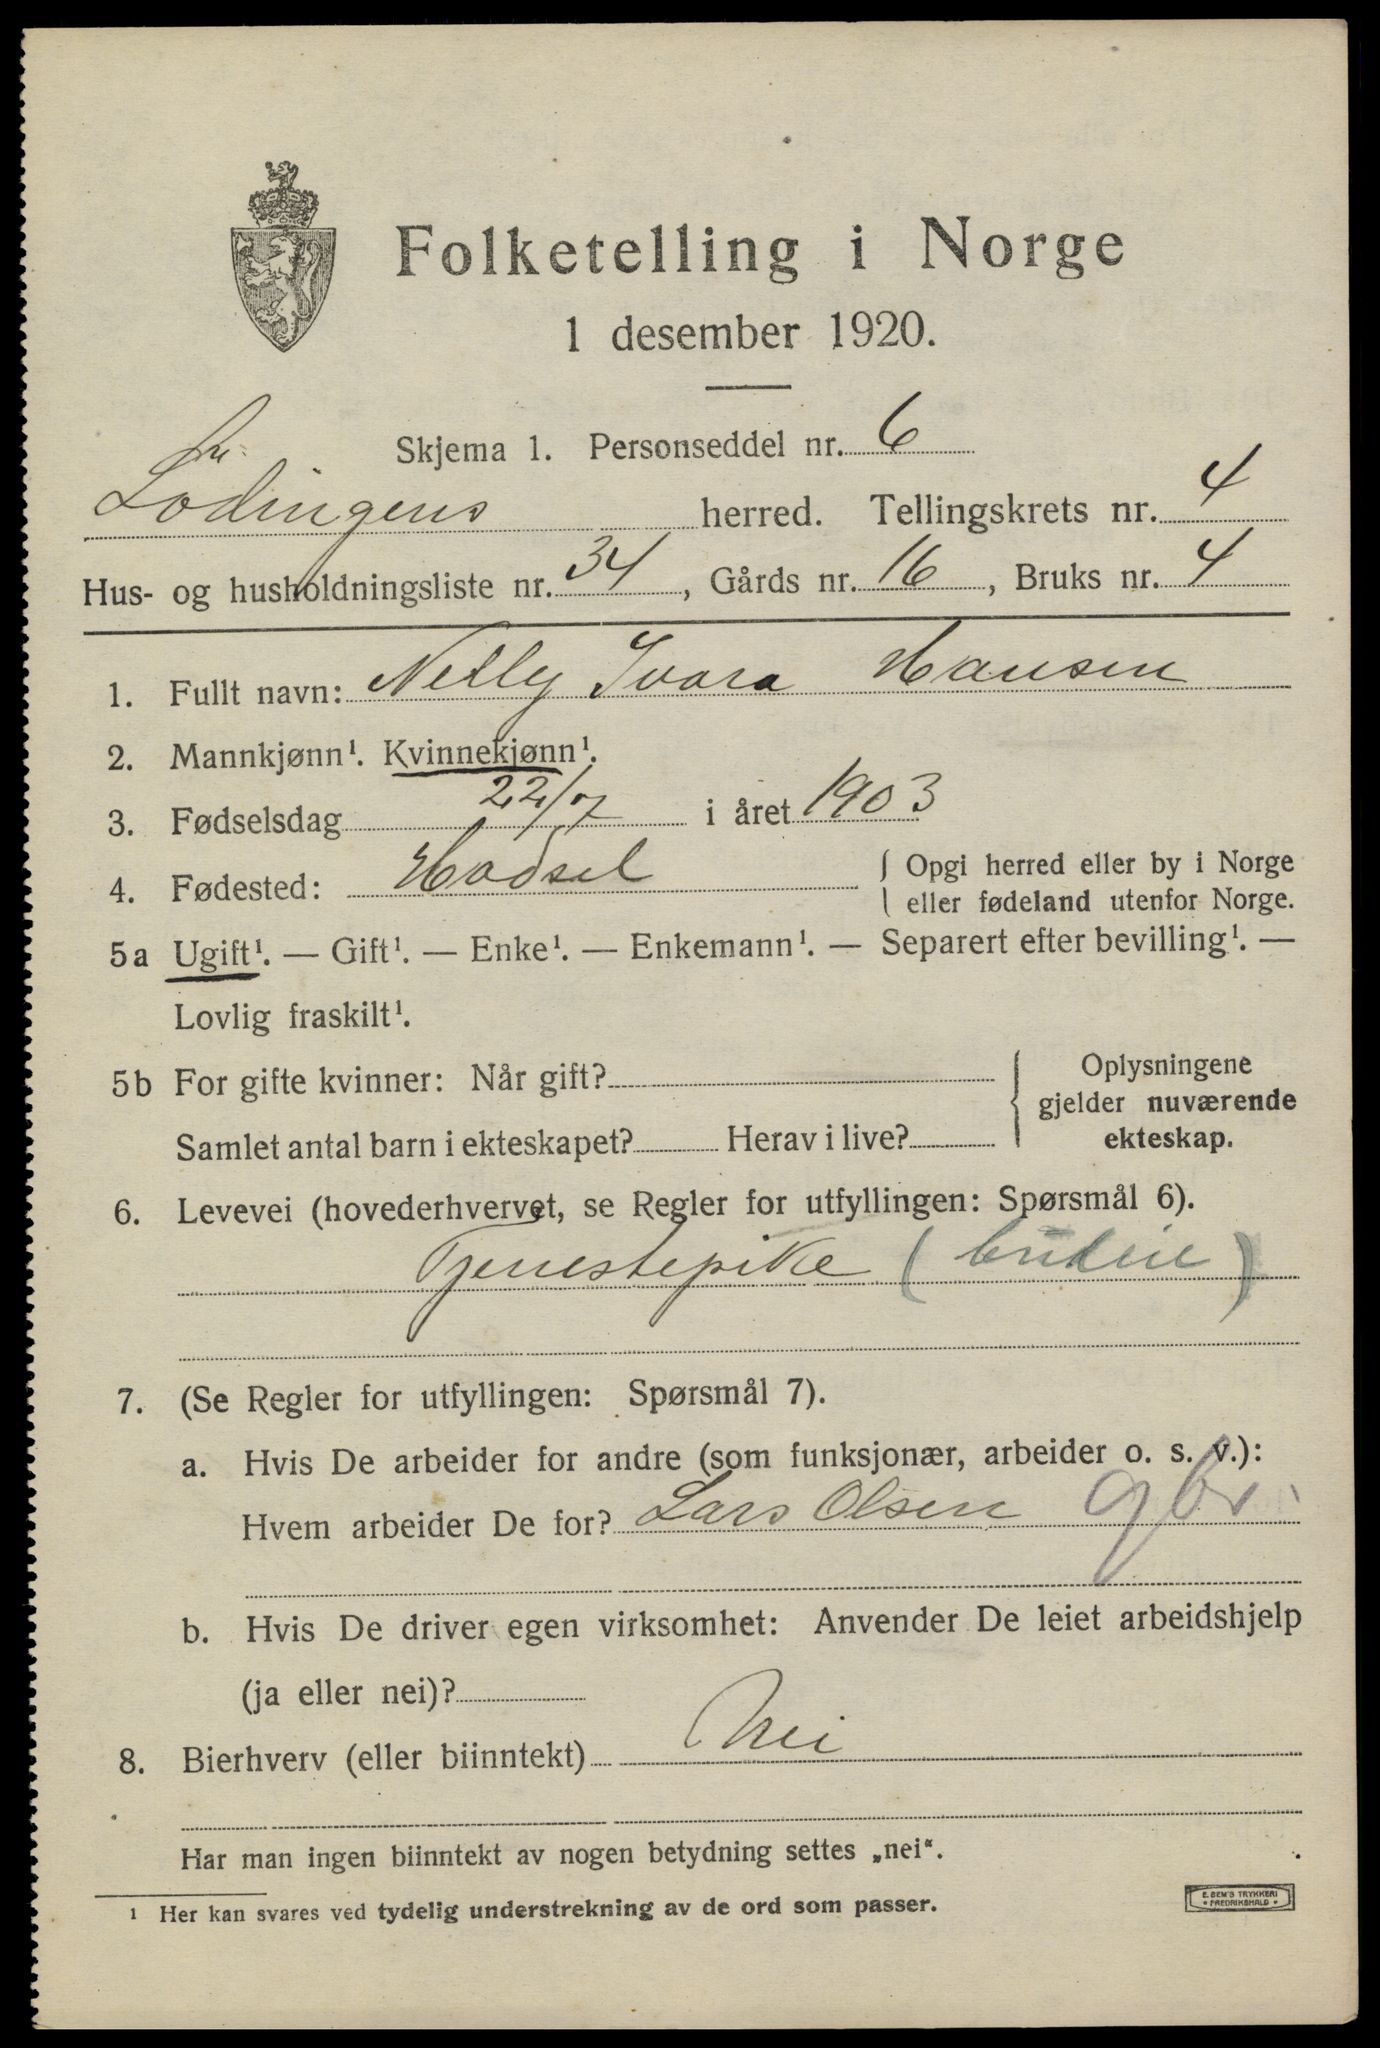 Folketelling i Norge
1 desember 1920.
Skjema 1. Personseddel nr. 6
Lødingens herred. Tellingskrets nr. 4
Hus- og husholdningsliste nr. 34, Gårds nr. 16, Bruks nr. 4
1. Fullt navn: Nelly Ivara Hansen
2. Mannkjønn¹. Kvinnekjønn¹.
3. Fødselsdag 22/7 i året 1903
4. Fødested: Hadsel { Opgi herred eller by i Norge
eller fødeland utenfor Norge.
5a Ugift¹. — Gift¹. — Enke¹. — Enkemann¹. — Separert efter bevilling¹. —
Lovlig fraskilt¹.
5b For gifte kvinner: Når gift? { Oplysningene
gjelder nuværende
Samlet antal barn i ekteskapet? Herav i live? ekteskap.
6. Levevei (hovederhvervet, se Regler for utfyllingen: Spørsmål 6).
Tjenestepike (budeie)
7. (Se Regler for utfyllingen: Spørsmål 7).
a. Hvis De arbeider for andre (som funksjonær, arbeider o. s. v.):
Hvem arbeider De for? Lars Olsen gbr.
b. Hvis De driver egen virksomhet: Anvender De leiet arbeidshjelp
(ja eller nei)?
8. Bierhverv (eller biinntekt) Nei
Har man ingen biinntekt av nogen betydning settes „nei“.
¹ Her kan svares ved tydelig understrekning av de ord som passer.
E. SEM'S TRYKKERI
• FREDRIKSHALD •